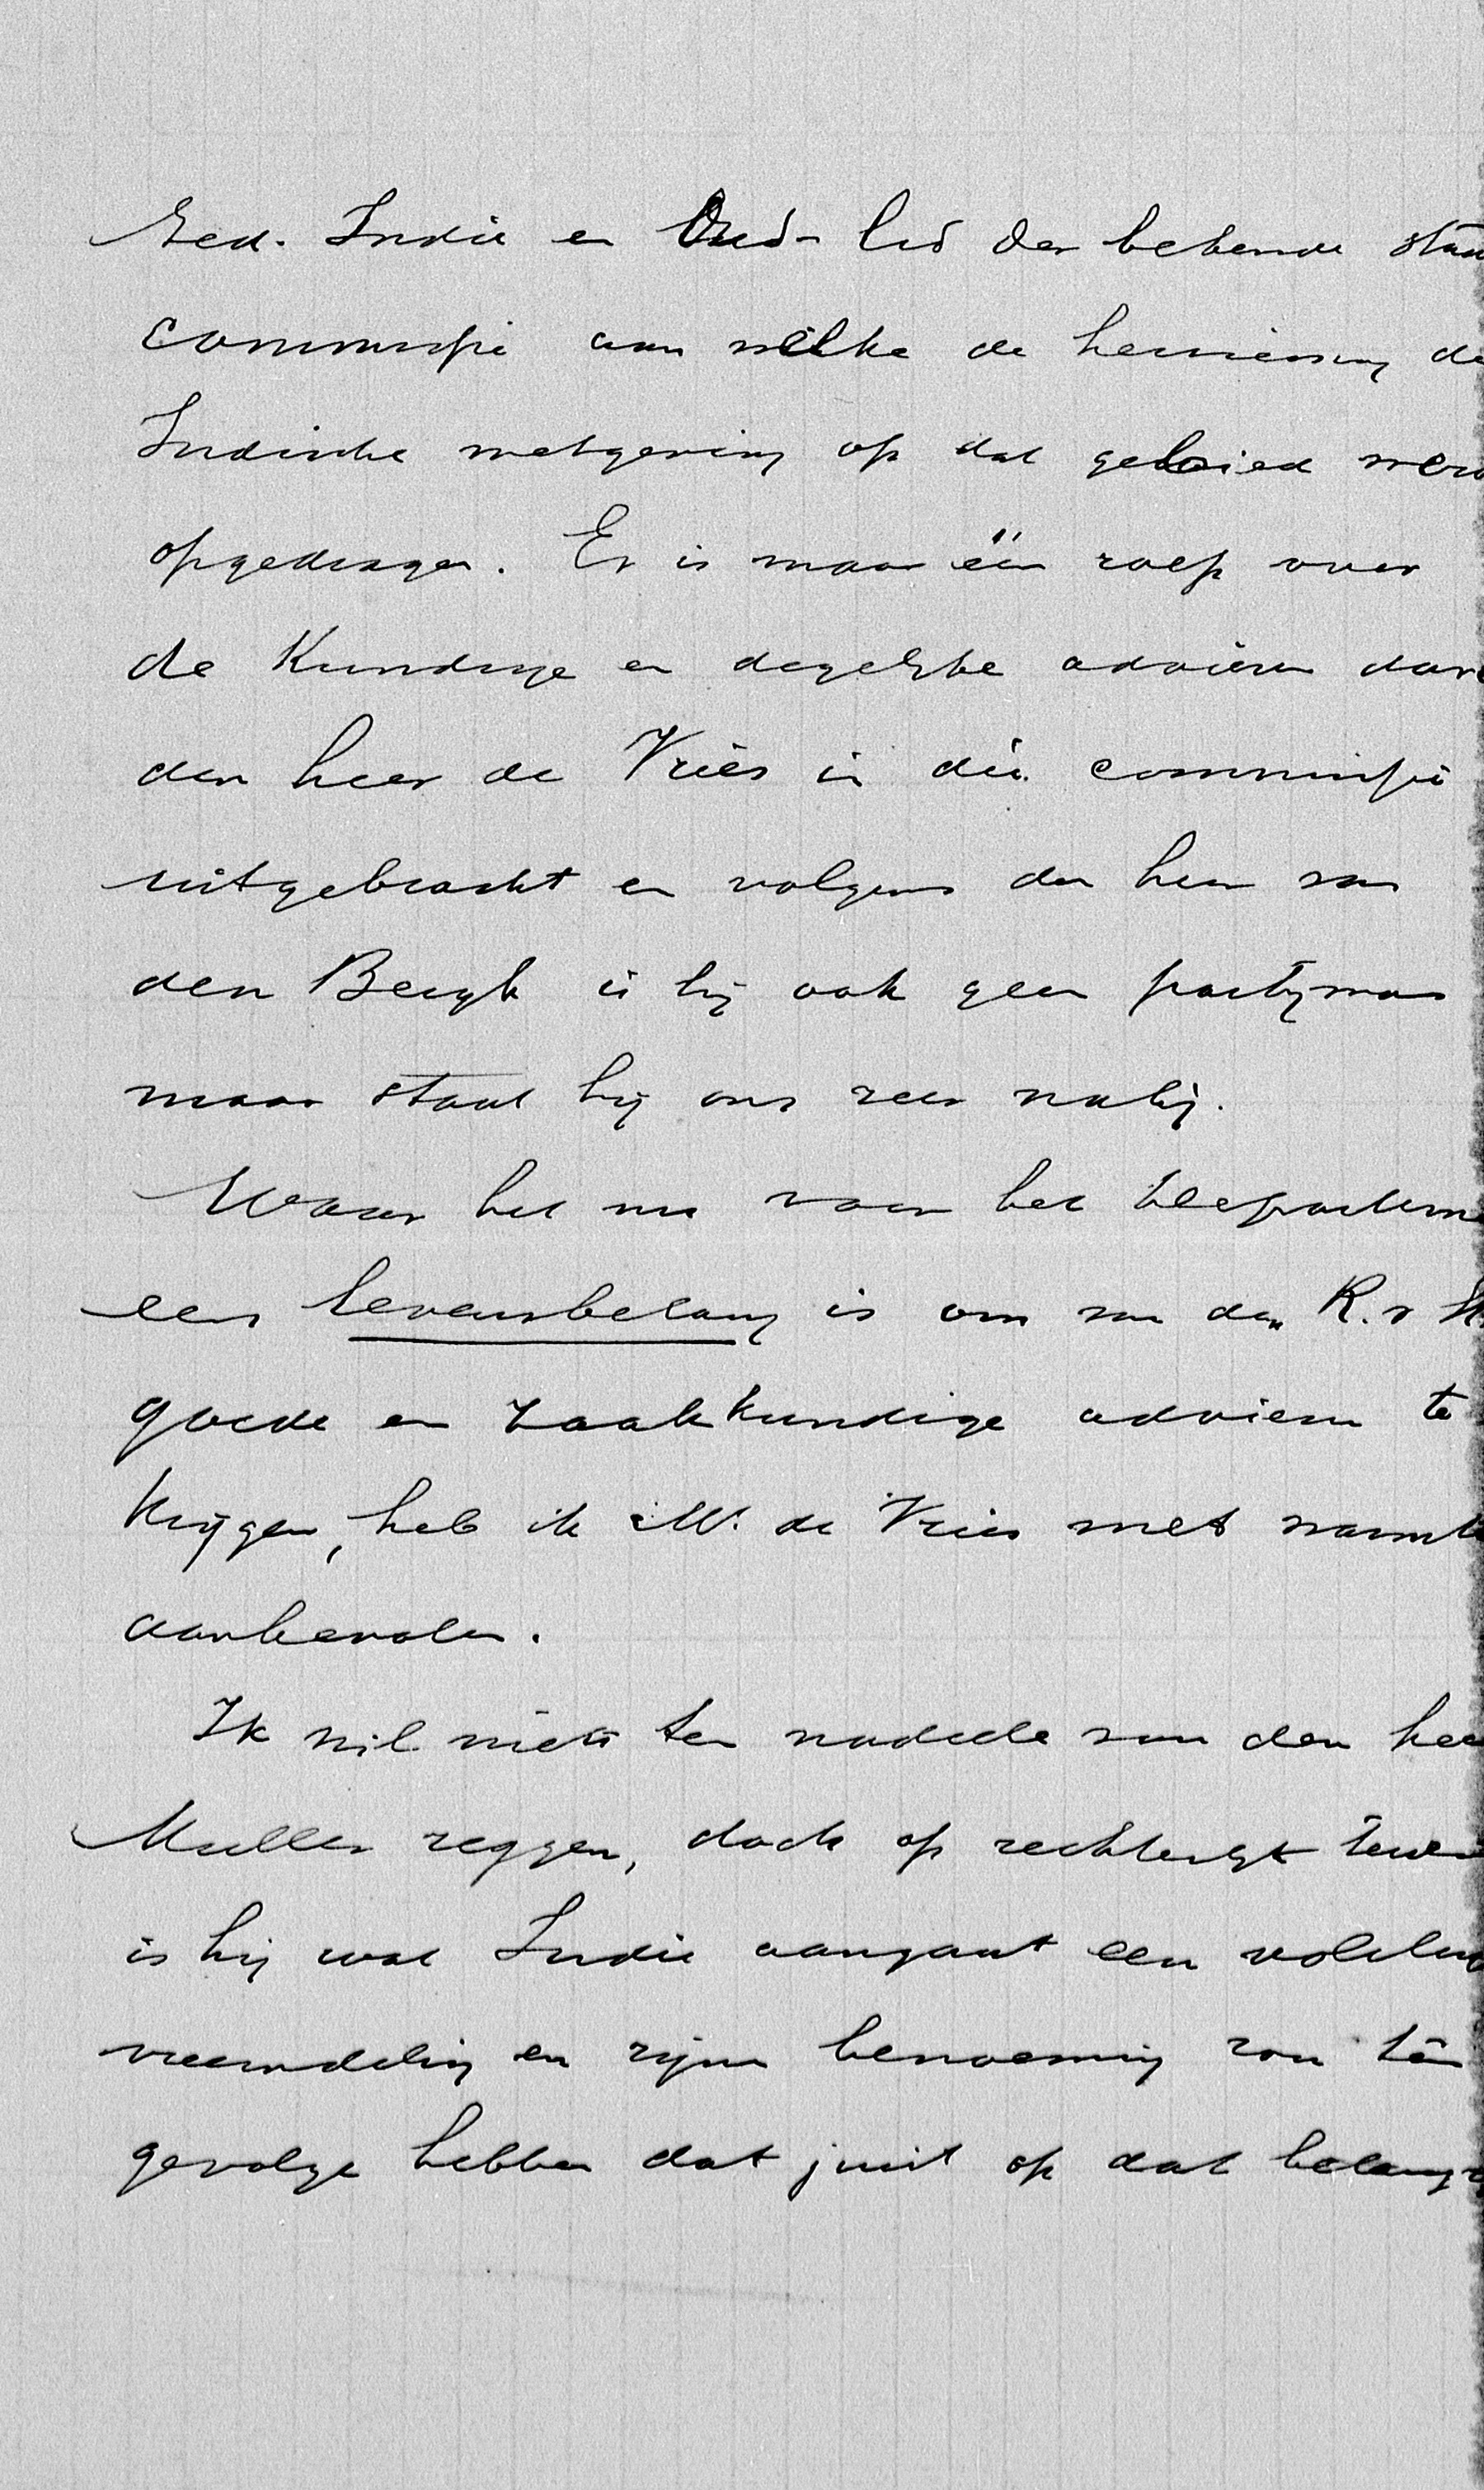 Ned. Indië en Oud-lid der bekende staa
commissie aan welke de herziening de
Indische wetgeving op dat gebied werd
opgedragen. Er is maar één roep over
de kundige en degelijke adviezen door
den heer de Vries in die commissie
uitgebracht en volgens den heer van
den Bergh is hij ook geen partijman
maar staat hij ons zeer nabij.
Waar het nu voor het Departeme
een levensbelang is om van den R. v St.
goede en zaakkundige adviezen te
krijgen, heb ik Mr. de Vries met warmte
aanbevolen.
Ik wil niets ten nadeele van den hee
Muller zeggen, doch op rechterlijk terre
is hij wat Indië aangaat een volslag
vreemdeling en zijne benoeming zou ten
gevolge hebben dat juist op dat belangr